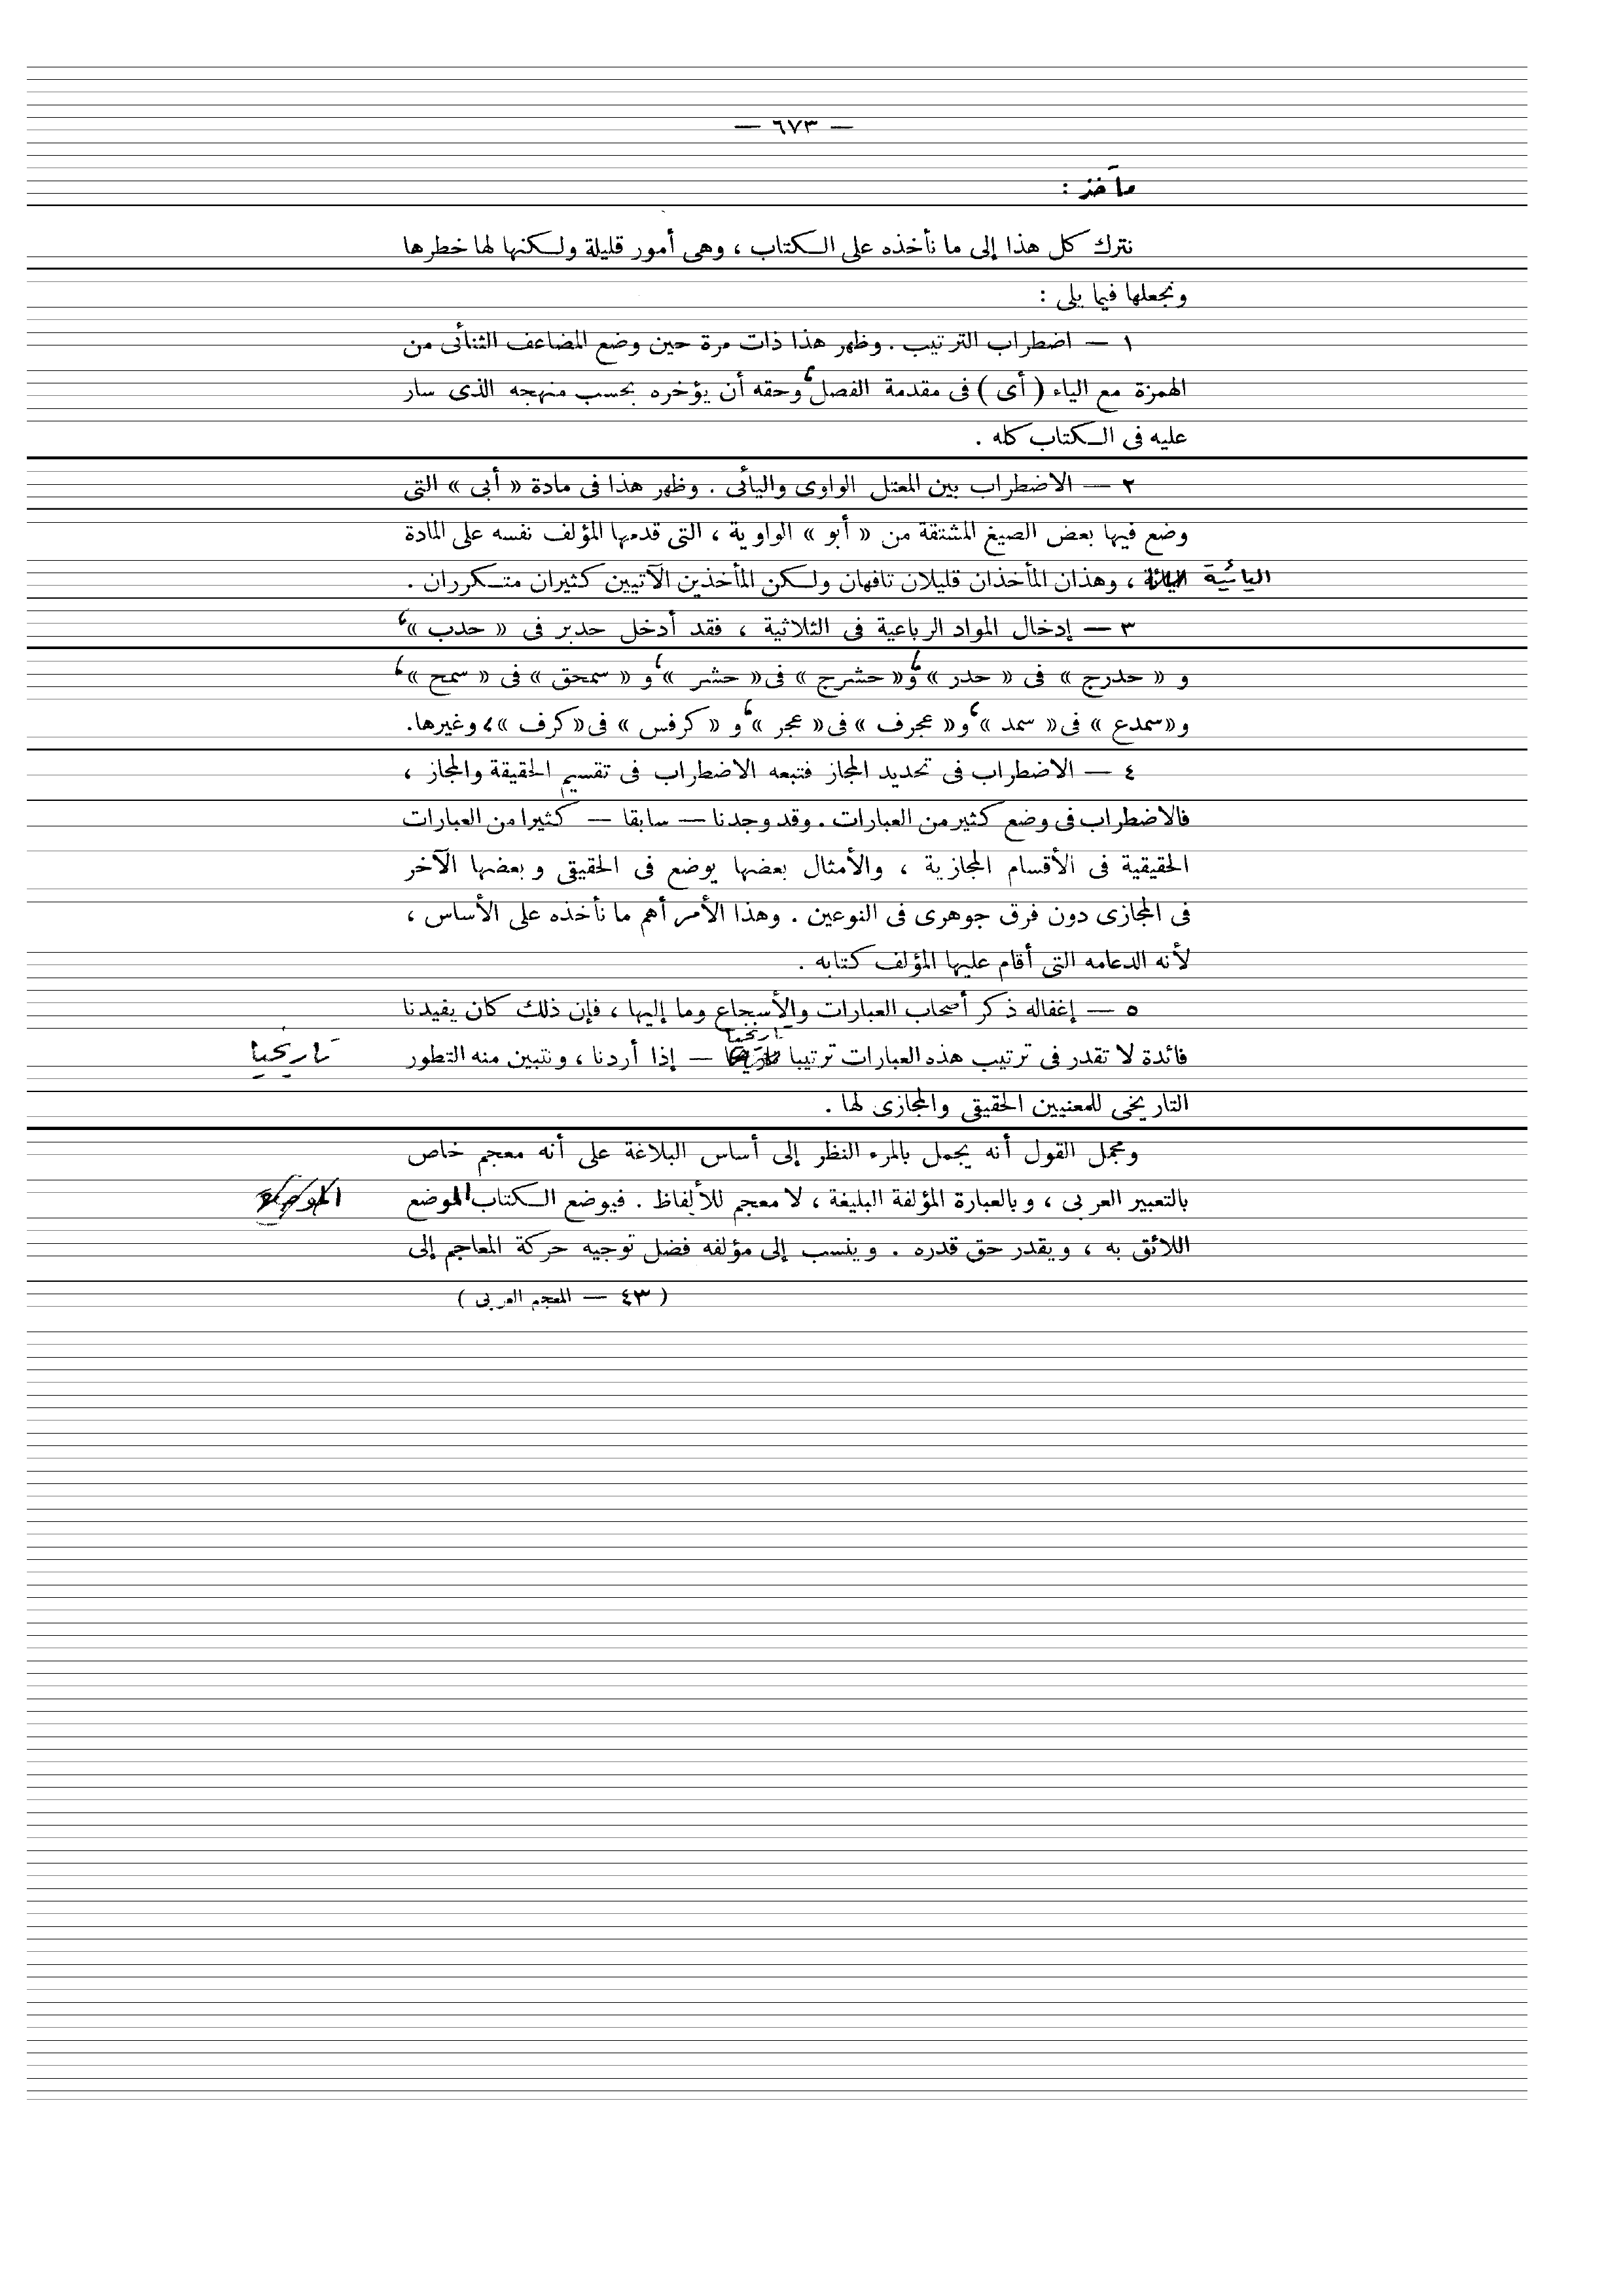 — ٦٧٣ —
مآخذ :
نترك كل هذا إلى ما نأخذه على الكتاب ، وهى أمور قليلة ولكنها لها خطرها
ونجعلها فيما يلى :
١ — اضطراب الترتيب . وظهر هذا ذات مرة حين وضع المضاعف الثنائى من
الهمزة مع الياء ( أى ) فى مقدمة الفصل ، وحقه أن يؤخره بحسب منهجه الذى سار
عليه فى الكتاب كله .
٢ — الاضطراب بين المعتل الواوى واليائى . وظهر هذا فى مادة « أبى » التى
وضع فيها بعض الصيغ المشتقة من « أبو » الواوية ، التى قدمها المؤلف نفسه على المادة
اليائية ، وهذان المأخذان قليلان تافهان ولكن المأخذين الآتيين كثيران متكرران .
٣ — إدخال المواد الرباعية فى الثلاثية ، فقد أدخل حدبر فى « حدب » ،
و « حدرج » فى « حدر » ، و« حشرج » فى« حشر » ، و « سمحق » فى « سمح » ،
و«سمدع » فى« سمد » ، و« عجرف » فى« عجر » ، و « كرفس » فى«كرف » ، وغيرها.
٤ — الاضطراب فى تحديد المجاز فتبعه الاضطراب فى تقسيم الحقيقة والمجاز ،
فالاضطراب فى وضع كثير من العبارات . وقد وجدنا — سابقا — كثيرا من العبارات
الحقيقية فى الأقسام المجازية ، والأمثال بعضها يوضع فى الحقيقى وبعضها الآخر
فى المجازى دون فرق جوهرى فى النوعين . وهذا الأمر أهم ما نأخذه على الأساس ،
لأنه الدعامه التى أقام عليها المؤلف كتابه .
٥ — إغفاله ذكر أصحاب العبارات والأسجاع وما إليها ، فإن ذلك كان يفيدنا
فائدة لا تقدر فى ترتيب هذه العبارات ترتيبا تاريخيا — إذا أردنا ، ونتبين منه التطور تاريخيا
التاريخى للمعنيين الحقيقى والمجازى لها .
ومجمل القول أنه يجمل بالمرء النظر إلى أساس البلاغة على أنه معجم خاص
بالتعبير العربى ، وبالعبارة المؤلفة البليغة ، لا معجم للألفاظ . فيوضع الكتاب الموضع
اللائق به ، ويقدر حق قدره . وينسب إلى مؤلفه فضل توجيه حركة المعاجم إلى
( ٤٣ — المعجم العربى )